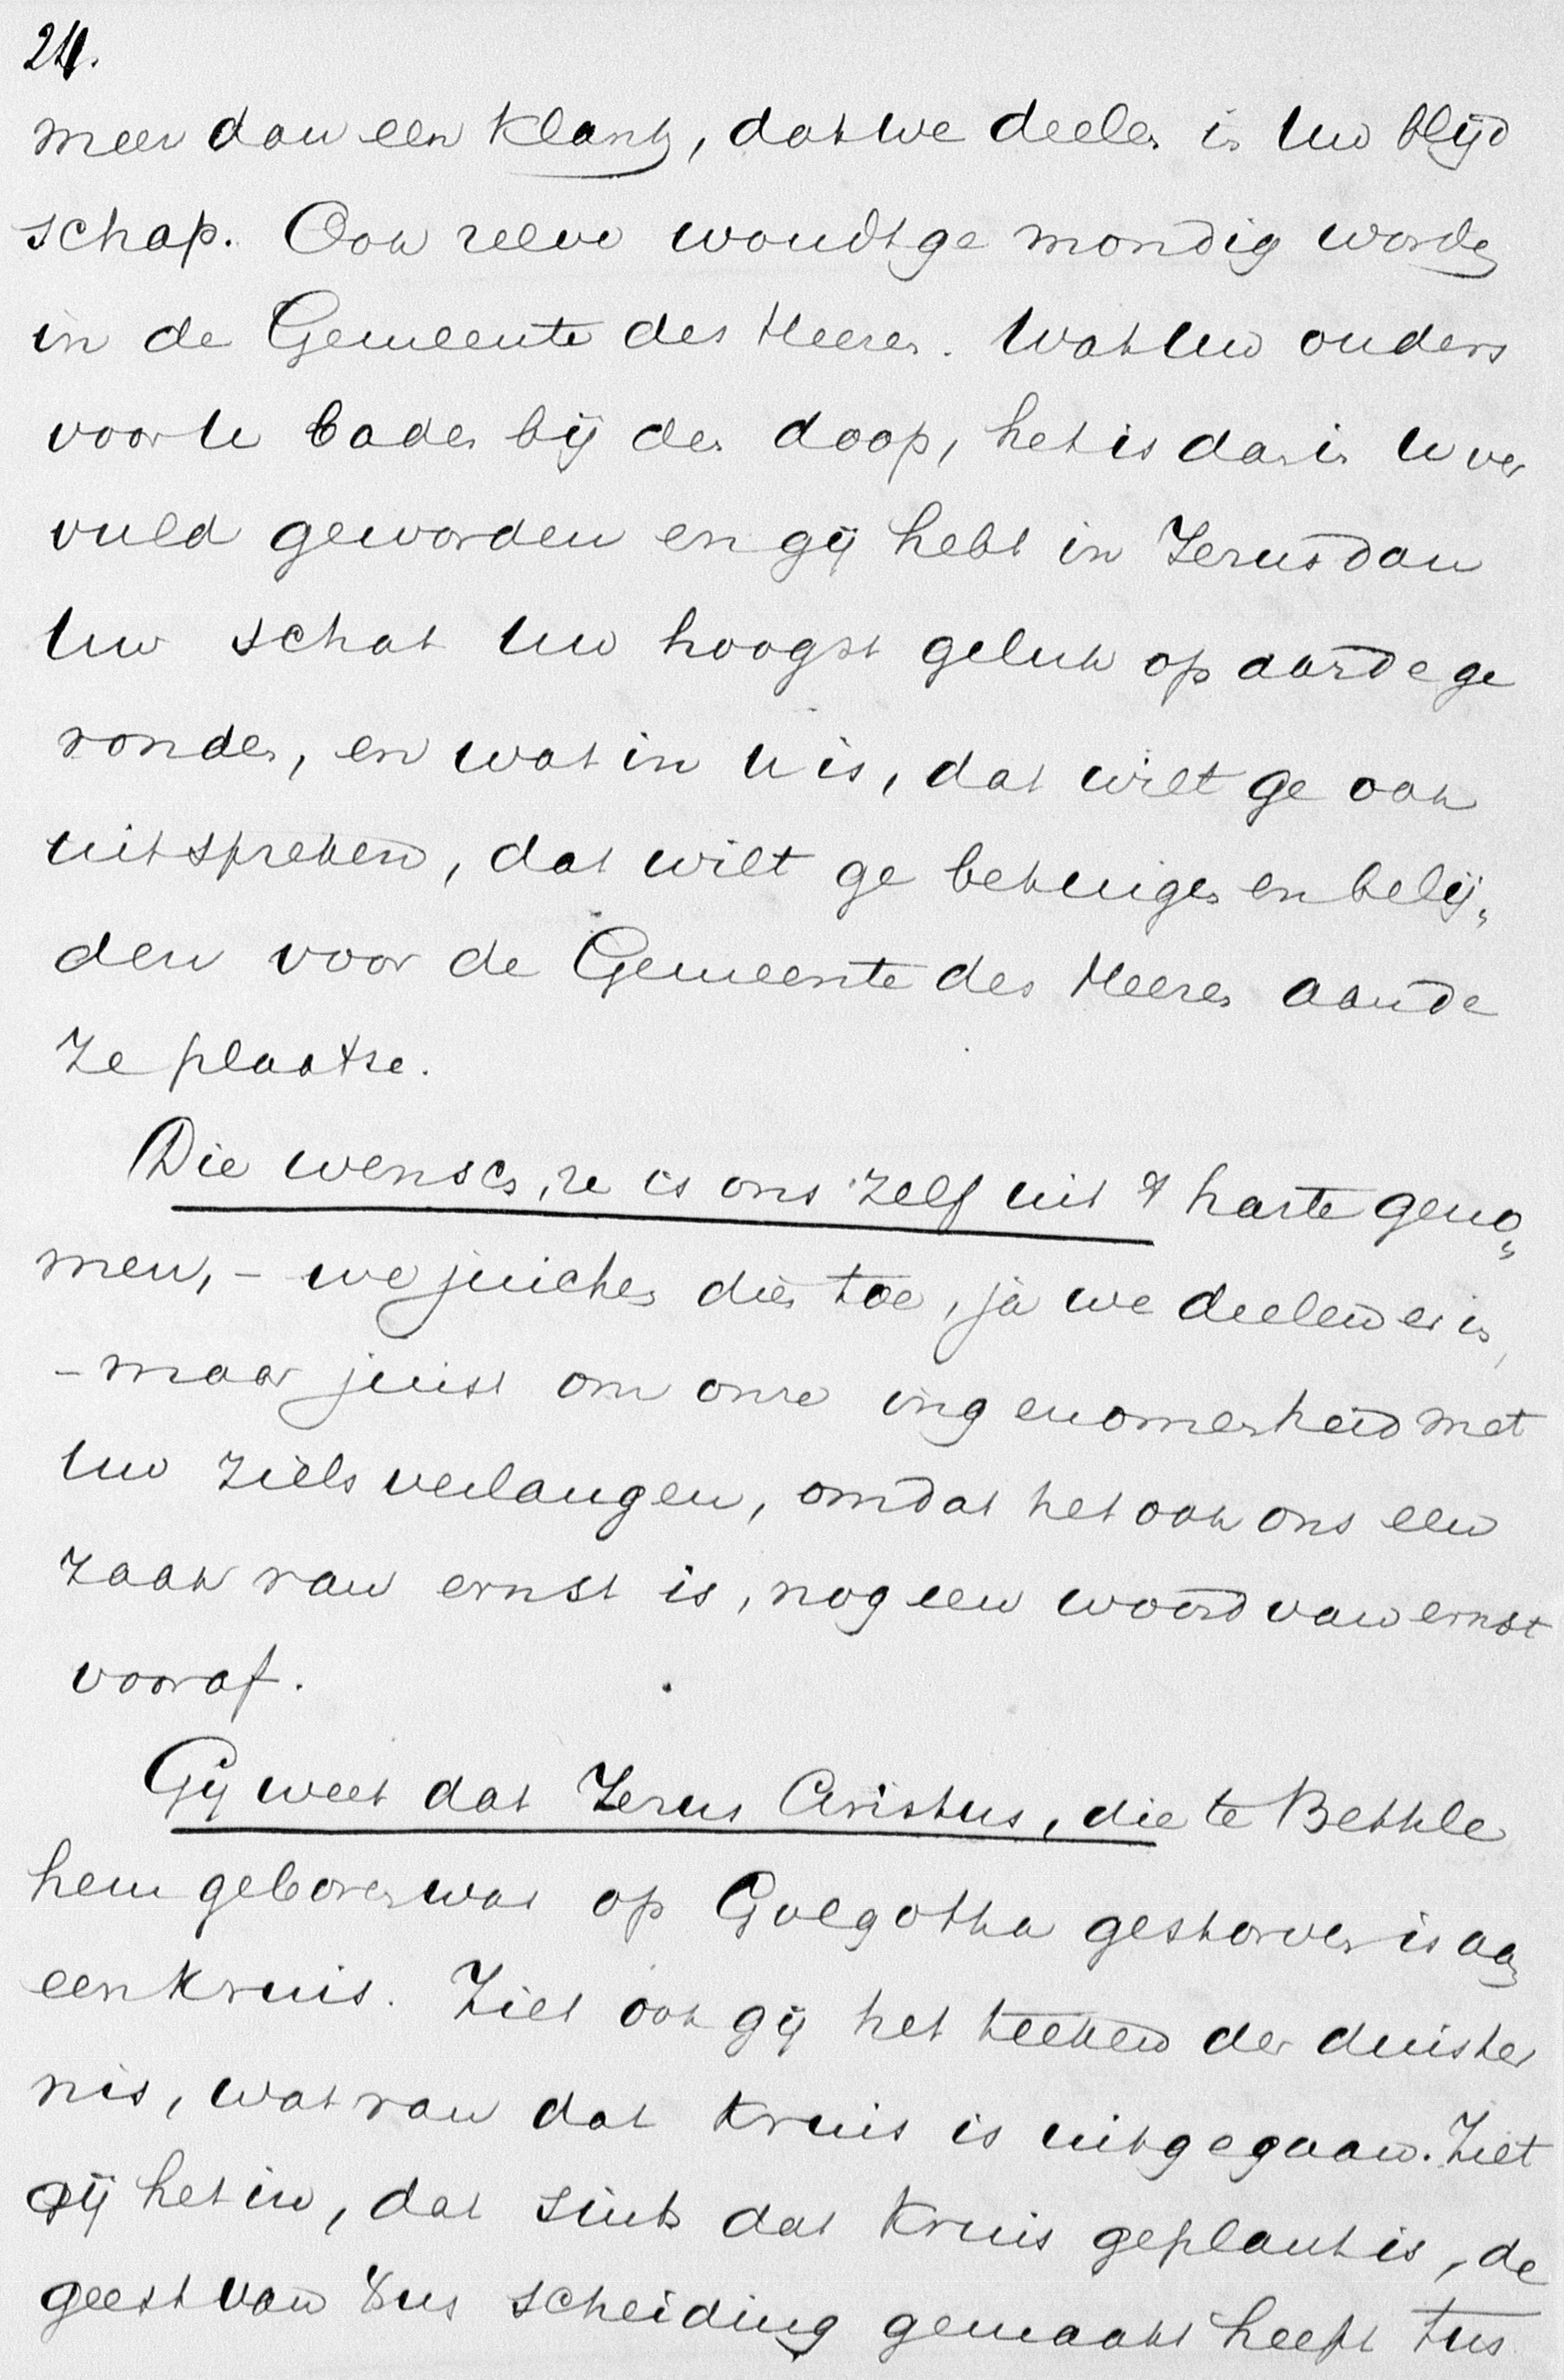 24.
meer dan een klank, dat we deelen in Uw blijd
schap. Ook zelve woudt ge mondig worden
in de Gemeente des Heeren. Wat Uw ouders
voor U baden bij den doop, het is dan in U ver
vuld geworden en gij hebt in Jezus dan
Uw schat Uw hoogst geluk op aarde ge
vonden, en wat in U is, dat wilt ge ook
uitspreken, dat wilt ge betuigen en belij„
den voor de Gemeente des Heeren aan de
ze plaatse.
Die wensch, ze is ons zelf uit 't harte geno„
men, - we juichen dien toe, ja we deelen er in,
- maar juist om onze ingenomenheid met
Uw zielsverlangen, omdat het ook ons een
zaak van ernst is, nog een woord van ernst
vooraf.
Gij weet dat Jezus Christus, die te Bethle
hem geboren was op Golgotha gestorven is aan
een kruis. Ziet ook gij het teeken der duister
nis, wat van dat kruis is uitgegaan. Ziet
gij het in, dat sints dat kruis geplant is, de
geest van dus scheiding gemaakt heeft tus